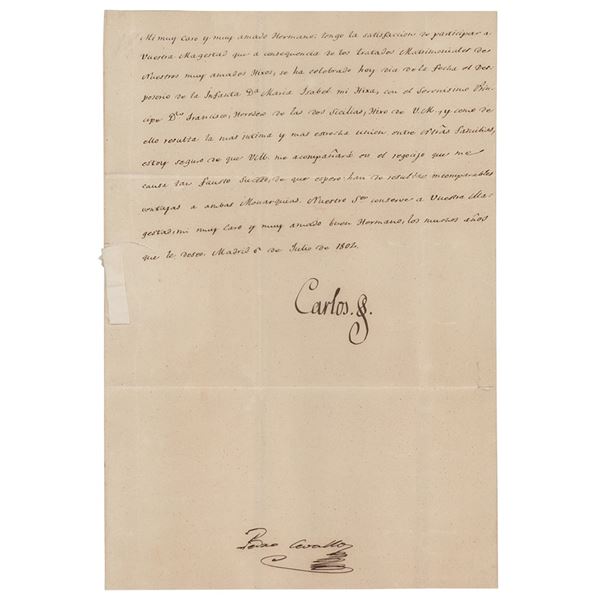 Mi muy Caro y muy amado Hermano: tengo la satisfaccion de participar a
Vuestra Magestad que a consequencia de los tratados Matrimoniales de
Nuestros muy amados Hixos, se ha celebrado hoy dia de la fecha el Des-
posorio de la Infanta Dª Maria Isabel mi Hixa, con el Serenisimo Prin-
cipe Dn Francisco, Heredero de las dos Sicilias, Hixo de V.M., y como de
ello resulta la mas intima y mas estrecha union entre ntras familias,
estoy seguro de que V.M. me acompañará en el regocijo que me
causa tan fausto suceso, de que espero han de resultar incomparables
ventajas a ambas Monarquias. Nuestro Sor conserve a Vuestra Ma-
gestad, mi muy Caro y muy amado buen Hermano, los muchos años
que le deseo. Madrid 6 de Julio de 1802.
Carlos.
Pedro Cevallos